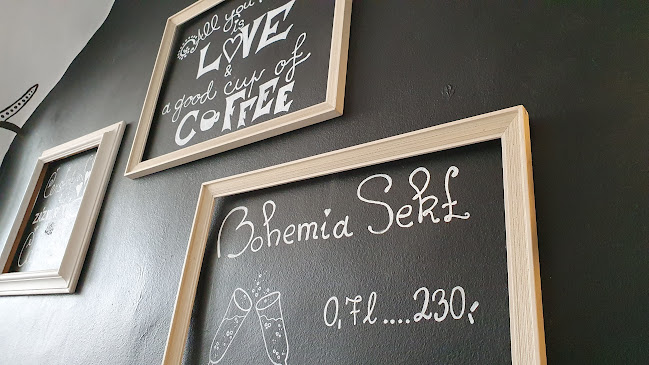 All you
is
LOVE
&
a good cup of
COFFEE
Bohemia Sekt
0,7l....230,-